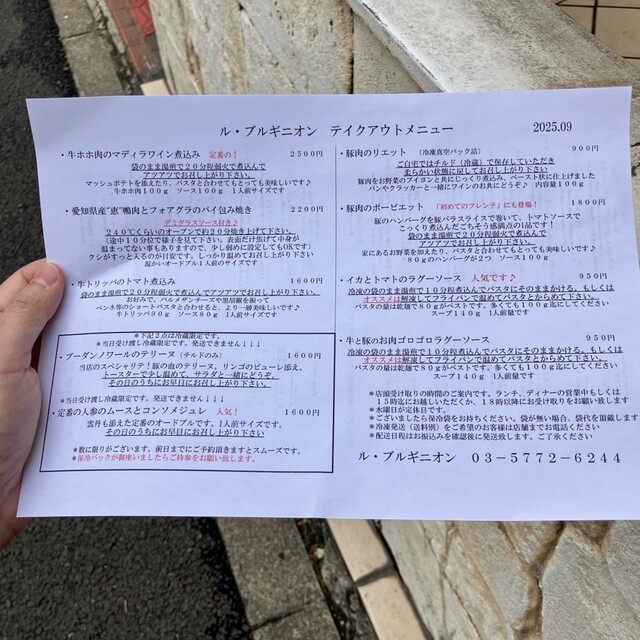 ル・ブルギニオン　テイクアウトメニュー　2025.09
・牛ホホ肉のマディラワイン煮込み　定番の！　2500円
袋のまま湯煎で20分程弱火で煮込んで
アツアツでお召し上がり下さい。
マッシュポテトを添えたり、パスタと合わせてもとっても美味しいです♪
牛ホホ肉100g　ソース100g　1人前サイズです
・愛知県産"恵"鴨肉とフォアグラのパイ包み焼き　2200円
デミグラスソース付き♪
240℃くらいのオーブンで約20分焼き上げて下さい。
（途中10分位で様子を見て下さい。表面だけ焦げて中身が
温まってない事もありますので、少し弱めに設定してもOKです）
クシがすっと入るのが目安です。しっかり温めてお召し上がり下さい
温かいオードブル1人前のサイズです
・牛トリッパのトマト煮込み　1600円
袋のまま湯煎で20分程弱火で煮込んでアツアツでお召し上がり下さい。
お好みで、パルメザンチーズや黒胡椒を振って
ペンネ等のショートパスタと合わせると、より一層美味しいです♪
牛トリッパ90g　ソース80g　1人前サイズ
＊下記2点は冷蔵限定です。
＊当日受け渡し冷蔵限定です。発送できません↓↓↓
・ブーダンノワールのテリーヌ（チルドのみ）　1600円
当店のスペシャリテ！豚の血のテリーヌ。リンゴのピューレ添え。
トースターで少し温めて、サラダと一緒にどうぞ。
その日のうちにお早目にお召し上がり下さい。
＊当日受け渡し冷蔵限定です。発送できません↓↓↓
・定番の人参のムースとコンソメジュレ　人気！　1600円
雲丹も添えた定番のオードブルです。1人前サイズです。
その日のうちにお早目にお召し上がり下さい
＊数に限りがございます。前日までにご予約頂きますとスムーズです。
＊保冷バックが御座いましたらご持参をお願い致します。
・豚肉のリエット　（冷凍真空パック詰）　900円
ご自宅ではチルド（冷蔵）で保存していただき
柔らかい状態に戻してお召し上がり下さい。
豚肉をお野菜のブイヨンと共にじっくり煮込み、ペースト状に仕上げました
パンやクラッカーと一緒にワインのお共にどうぞ♪　内容量100g
・豚肉のポーピエット　「初めてのフレンチ」にも登場！　1800円
豚のハンバーグを豚バラスライスで巻いて、トマトソースで
こっくり煮込んだごちそう感満点の1品です！
袋のまま湯煎で20分程弱火で煮込んで
アツアツでお召し上がり下さい。
家にあるお野菜を加えたり、パスタと合わせてもとっても美味しいです♪
80gのハンバーグが2つ　ソース100g
・イカとトマトのラグーソース　人気です♪　950円
冷凍の袋のまま湯煎で10分程煮込んでパスタにそのままかける。もしくは
オススメは解凍してフライパンで温めてパスタとからめて下さい。
パスタの量は乾麺で80gがベストです。多くても100g迄にして下さい
スープ140g　1人前量です
・牛と豚のお肉ゴロゴロラグーソース　950円
冷凍の袋のまま湯煎で10分程煮込んでパスタにそのままかける。もしくは
オススメは解凍してフライパンで温めてパスタとからめて下さい。
パスタの量は乾麺で80gがベストです。多くても100g迄にして下さい
スープ140g　1人前量です
＊店頭受け取りの時間のご案内です。ランチ、ディナーの営業中もしくは
15時迄にお越しいただくか、18時以降にお受け取りをお願い致します
＊水曜日が定休日です。
＊ございましたら保冷袋をお持ちください。袋が無い場合、袋代を頂戴します
＊冷凍発送（送料別）をご希望のお客様は店舗までお電話ください
＊配送日程はお振込みを確認後に発送致します。ご了承ください
ル・ブルギニオン　03-5772-6244